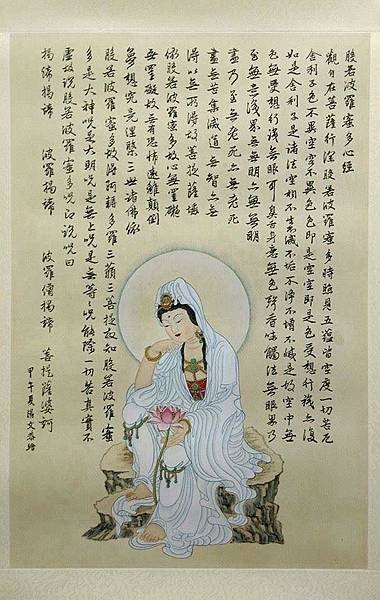 般若波羅蜜多心經
觀自在菩薩行深般若波羅蜜多時照見五蘊皆空度一切苦厄
舍利子色不異空空不異色色即是空空即是色受想行識亦復
如是舍利子是諸法空相不生不滅不垢不淨不增不減是故空中無
色無受想行識無眼耳鼻舌身意無色聲香味觸法無眼界乃
至無意識界無無明亦無無明
盡乃至無老死亦無老死
盡無苦集滅道無智亦無
得以無所得故菩提薩埵
依般若波羅蜜多故心無罣礙
無罣礙故無有恐怖遠離顛倒
夢想究竟涅槃三世諸佛依
般若波羅蜜多故得阿耨多羅三藐三菩提故知般若波羅蜜
多是大神咒是大明咒是無上咒是無等等咒能除一切苦真實不
虛故說般若波羅蜜多咒即說咒曰
揭諦揭諦 波羅揭諦 波羅僧揭諦 菩提薩婆訶
甲午夏